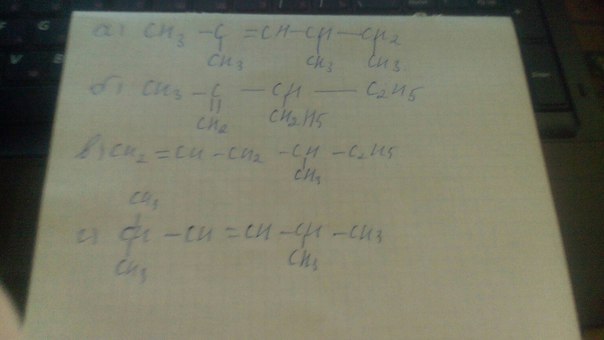 а) CH3 - C = CH - CH - CH2
CH3 CH3 CH3
б) CH3 - C - CH - C2H5
CH2 C2H5
в) CH2 = CH - CH2 - CH - C2H5
CH3
CH3
г) CH - CH = CH - CH - CH3
CH3 CH3